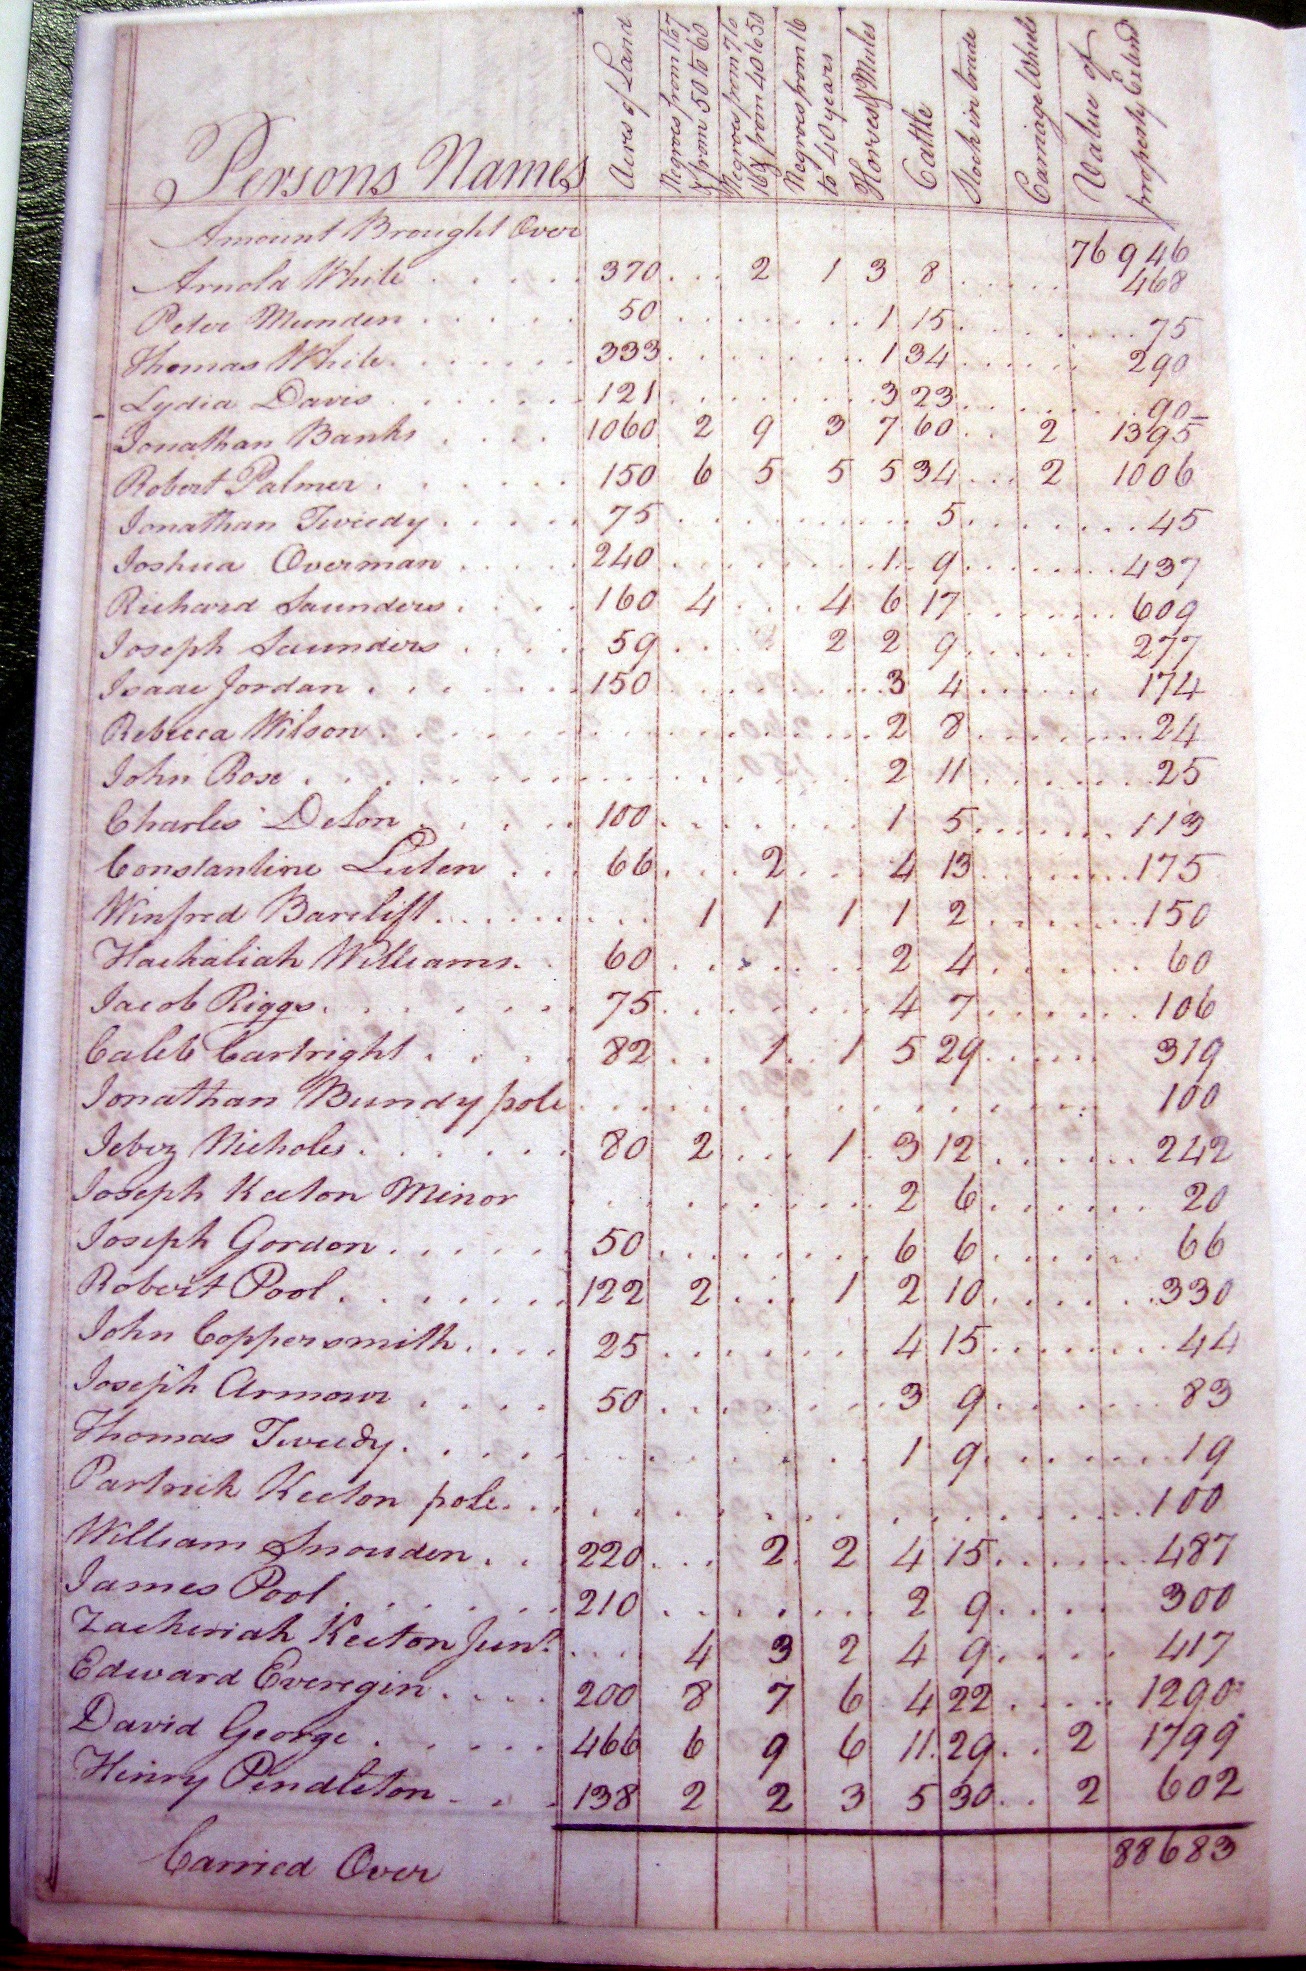 Persons Names Acres of Land Negroes from 1 to 7 & from 50 to 60 Negroes from 7 to 16 & from 40 to 50 Negroes from 16 to 40 years Horses & Mules Cattle Stock in trade Carriage Wheels Value of property
Amount Brought Over 76946
Arnold White 370 2 1 3 8 468
Peter Munden 50 1 15 75
Thomas White 333 1 34 290
Lydia Davis 121 3 23 90
Jonathan Banks 1060 2 9 3 7 60 2 1395
Robert Palmer 150 6 5 5 5 34 2 1006
Jonathan Tweedy 75 5 45
Joshua Overman 240 1 9 437
Richard Saunders 160 4 4 6 17 609
Joseph Saunders 59 2 2 9 277
Isaac Jordan 150 3 4 174
Rebecca Wilson 2 8 24
John Rose 2 11 25
Charles Delon 100 1 5 113
Constantine Luten 66 2 4 13 175
Winfred Barclift 1 1 1 1 2 150
Hachaliah Williams 60 2 4 60
Jacob Riggs 75 4 7 106
Caleb Cartright 82 1 1 5 29 319
Jonathan Bundy pole 100
Jebez Nicholes 80 2 1 3 12 242
Joseph Keeton Minor 2 6 20
Joseph Gordon 50 6 6 66
Robert Pool 122 2 1 2 10 330
John Coppersmith 25 4 15 44
Joseph Armour 50 3 9 83
Thomas Tweedy 1 9 19
Partrick Keeton pole 100
William Snowden 220 2 2 4 15 487
James Pool 210 2 9 300
Zacheriah Keeton Junr. 4 3 2 4 9 417
Edward Everegin 200 8 7 6 4 22 1290
David George 466 6 9 6 11 29 2 1799
Henry Pendleton 138 2 2 3 5 30 2 602
Carried Over 88683